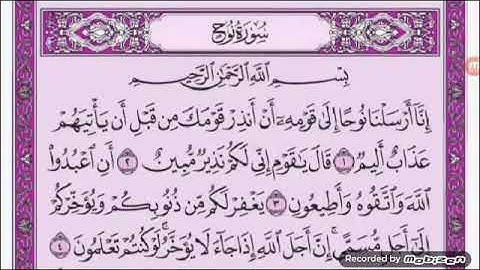 سُورَةُ نُوحٍ
بِسْمِ اللَّهِ الرَّحْمَٰنِ الرَّحِيمِ
إِنَّا أَرْسَلْنَا نُوحًا إِلَىٰ قَوْمِهِ أَنْ أَنذِرْ قَوْمَكَ مِن قَبْلِ أَن يَأْتِيَهُمْ
عَذَابٌ أَلِيمٌ ١ قَالَ يَا قَوْمِ إِنِّي لَكُمْ نَذِيرٌ مُّبِينٌ ٢ أَنِ اعْبُدُوا
اللَّهَ وَاتَّقُوهُ وَأَطِيعُونِ ٣ يَغْفِرْ لَكُم مِّن ذُنُوبِكُمْ وَيُؤَخِّرْكُمْ
إِلَىٰ أَجَلٍ مُّسَمًّى إِنَّ أَجَلَ اللَّهِ إِذَا جَاءَ لَا يُؤَخَّرُ لَوْ كُنتُمْ تَعْلَمُونَ ٤
Recorded by
Mobizen